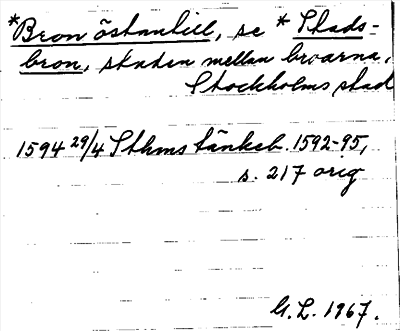 *Bron östantill, se *Stads-
bron, staden mellan broarna,
Stockholms stad
1594 29/4 Sthms tänkeb. 1592-95,
s. 217 orig
G.L. 1967.